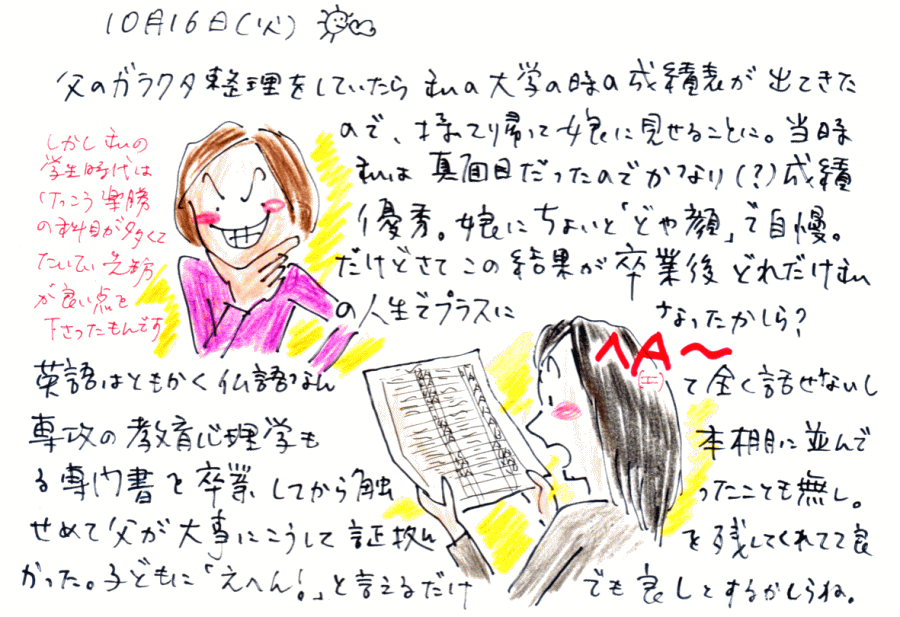 10月16日(火)
父のガラクタ整理をしていたら私の大学の時の成績表が出てきた
ので、持って帰って娘に見せることに。当時
私は真面目だったのでかなり(?)成績
優秀。娘にちょいと「どや顔」で自慢。
だけどさてこの結果が卒業後どれだけ私
の人生でプラスになったかしら?
しかし私の
学生時代は
けっこう楽勝
の科目が多くて
たいてい
が良い点を
下さったもんです
ヘA〜
英語はともかく仏語なんて全く話せないし
専攻の教育心理学も本棚に並んで
る専門書を卒業してから触ったことも無し。
せめて父が大事にこうして証拠を残してくれてて良
かった。子どもに「えへん!」と言えるだけでも良しとするかしらね。